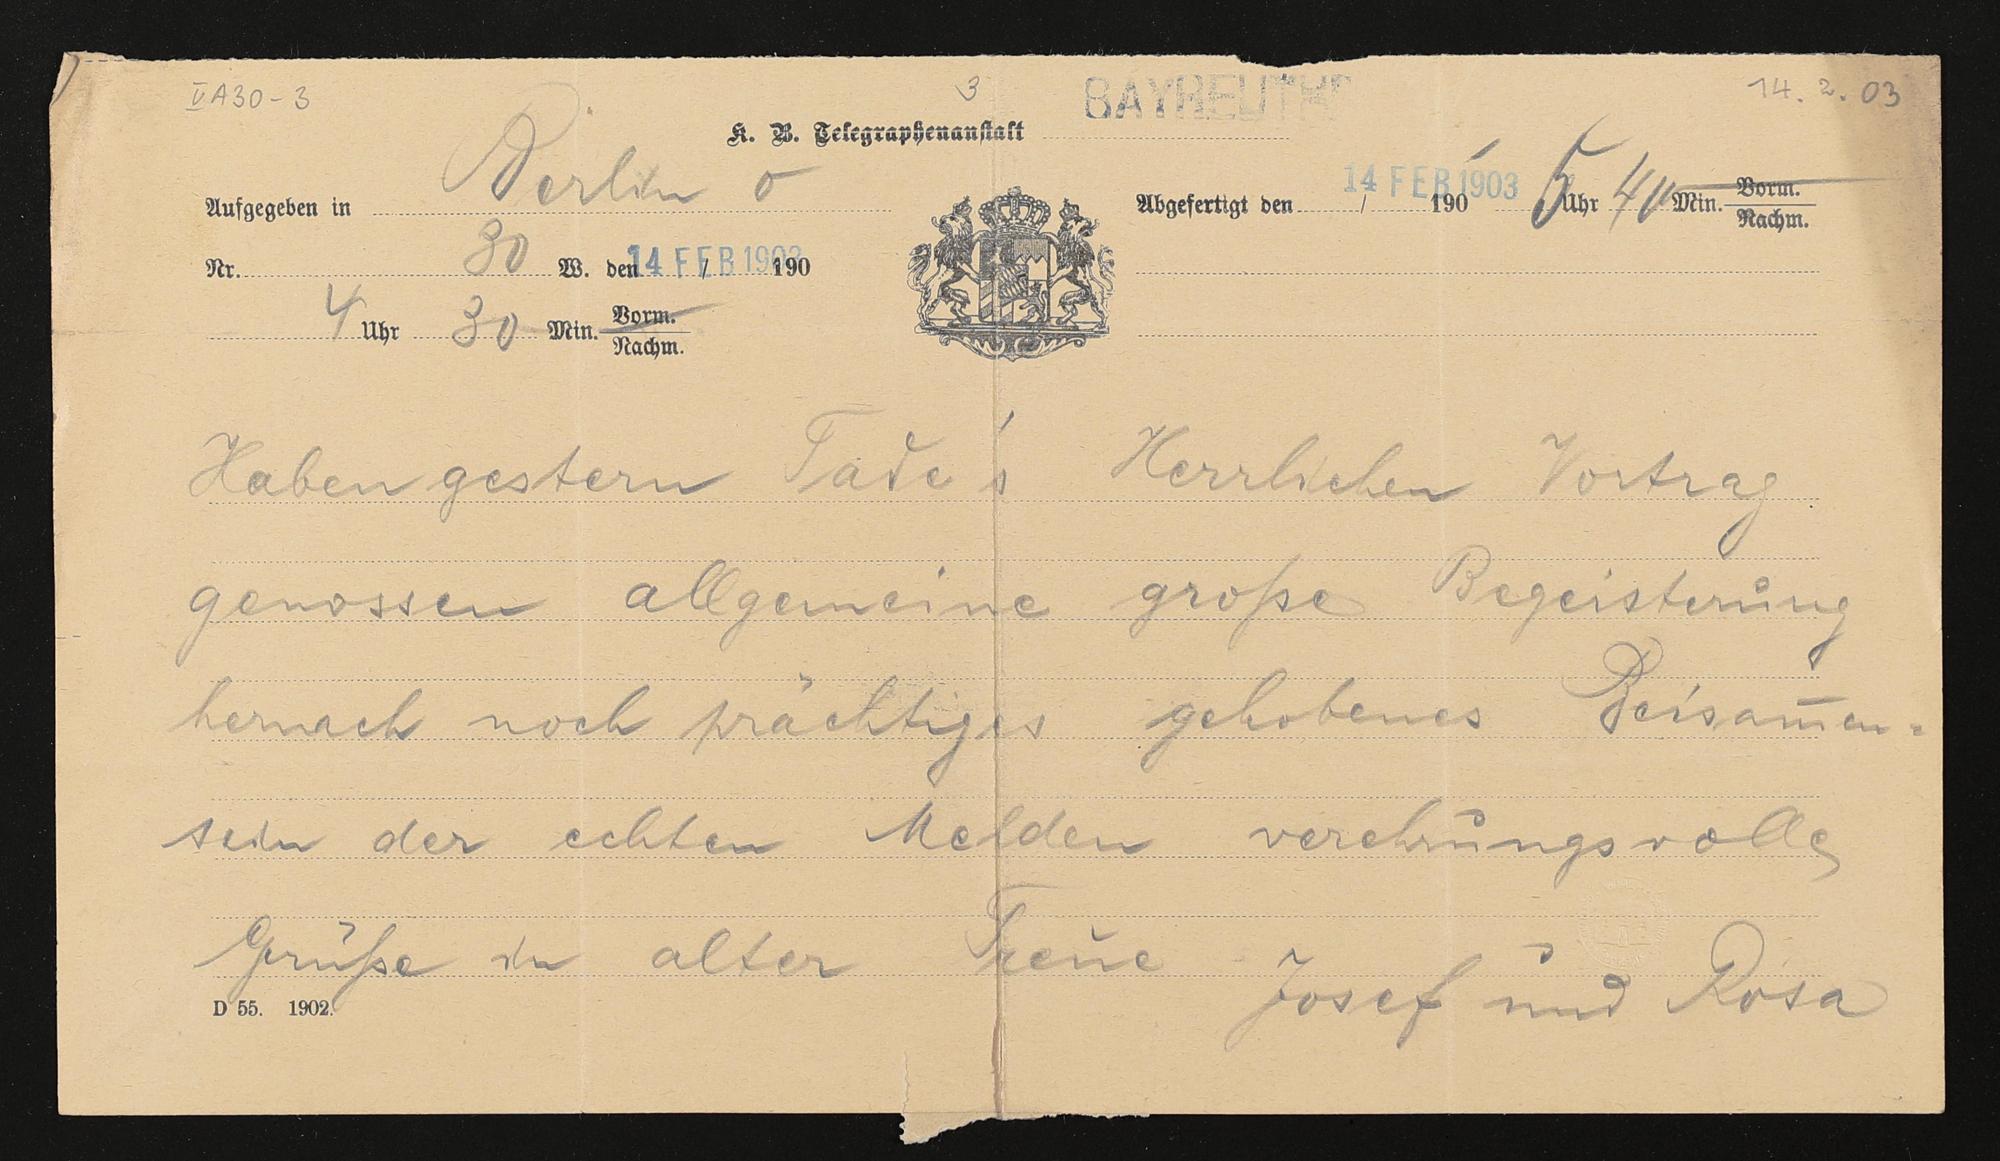 VA30-3
3
BAYREUTH
14. 2. 03
K. B. Telegraphenanstalt
Aufgegeben in Berlin o
Abgefertigt den 14 FEB 1903 / 190 5 Uhr 40 Min. Vorm. Nachm.
Nr. 30 W. den 14 FEB 1903 / 190
4 Uhr 30 Min. Vorm. Nachm.
Haben gestern Tade's Herrlichen Vortrag
genossen allgemeine große Begeisterung
hernach noch prächtiges gehobenes Beisam̅en=
sein der echten Melden verehrungsvolle
Grüße in alter Treue Josef und Rosa
D 55. 1902.